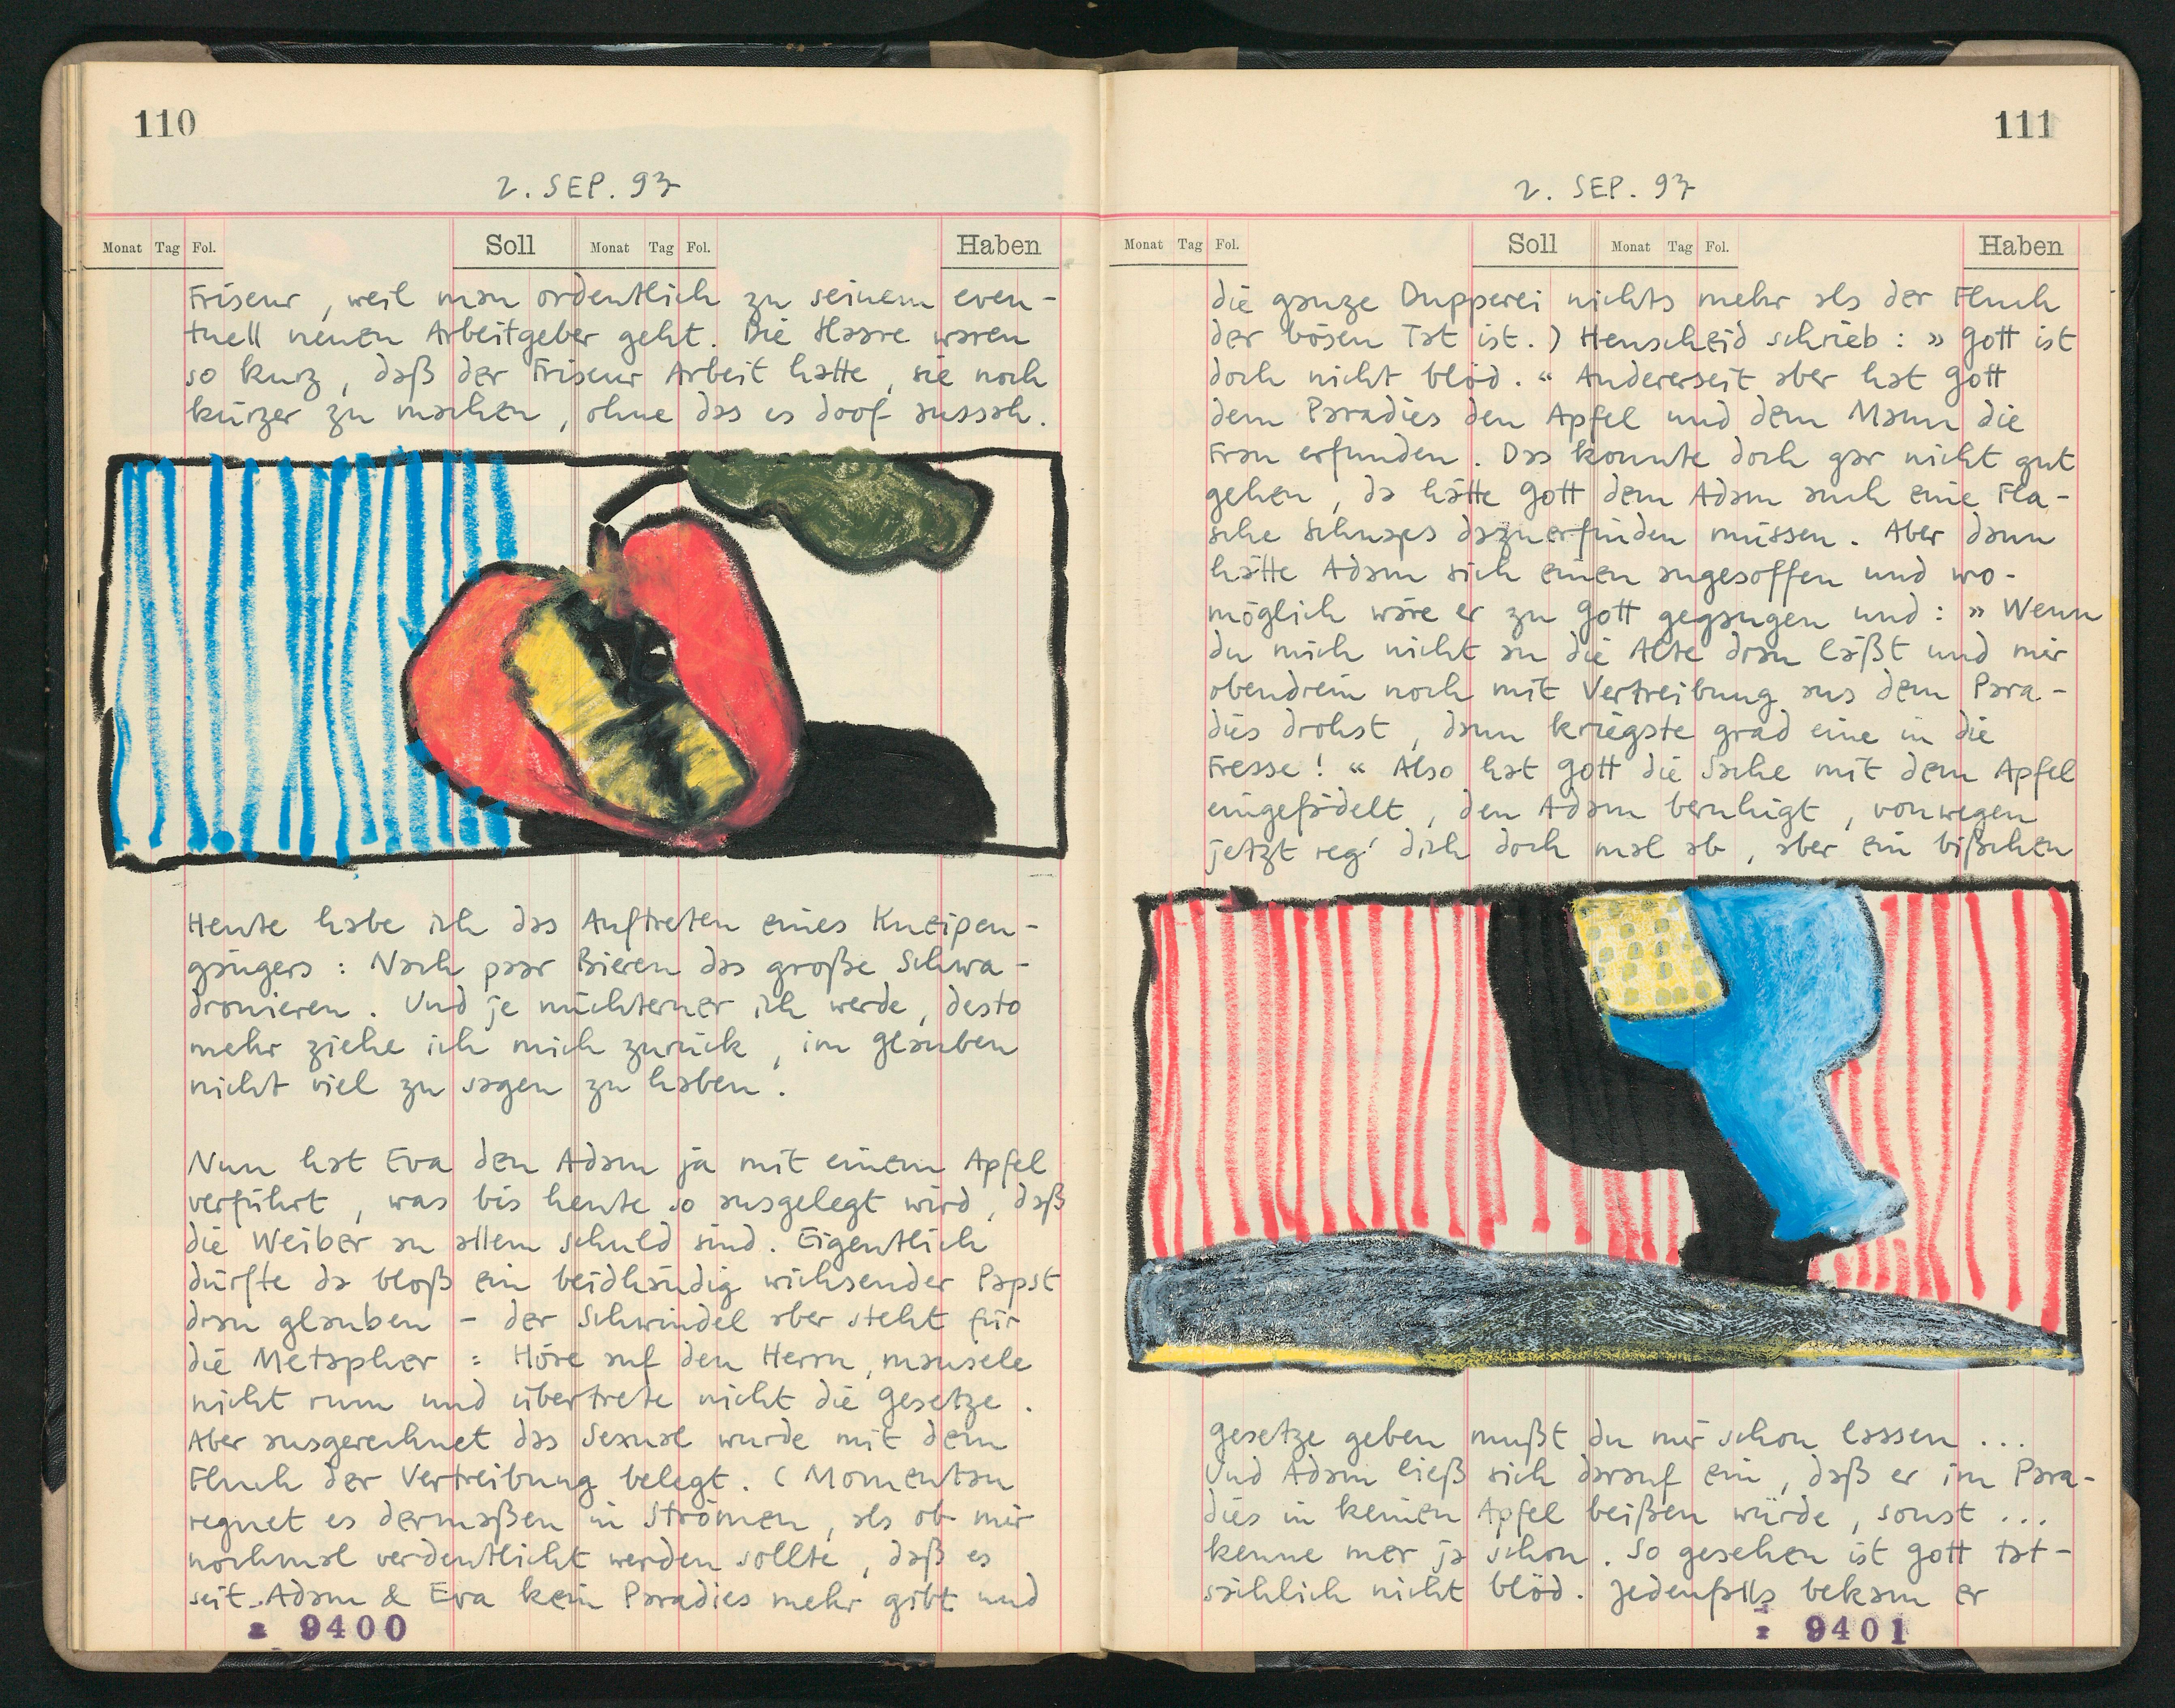 110
2. SEP. 97
Monat Tag Fol. Soll Monat Tag Fol. Haben
Friseur, weil man ordentlich zu seinem even-
tuell neuen Arbeitgeber geht. Die Haare waren
so kurz, daß der Friseur Arbeit hatte, sie noch
kürzer zu machen, ohne das es doof aussah.
Heute habe ich das Auftreten eines Kneipen-
gängers: Nach paar Bieren das große Schwa-
dronieren. Und je nüchterner ich werde, desto
mehr ziehe ich mich zurück, im glauben
nicht viel zu sagen zu haben.
Nun hat Eva den Adam ja mit einem Apfel
verführt, was bis heute so ausgelegt wird, daß
die Weiber an allem schuld sind. Eigentlich
dürfte da bloß ein beidhändig wichsender Papst
dran glauben – der Schwindel aber steht für
die Metapher: Höre auf den Herrn, mausele
nicht rum und übertrete nicht die Gesetze.
Aber ausgerechnet das Sexual wurde mit dem
Fluch der Vertreibung belegt. (Momentan
regnet es dermaßen in Strömen, als ob mir
nochmal verdeutlicht werden sollte, daß es
seit Adam & Eva kein Paradies mehr gibt und
9400
111
2. SEP. 97
Monat Tag Fol. Soll Monat Tag Fol. Haben
die ganze Dupperei nichts mehr als der Fluch
der bösen Tat ist.) Henscheid schrieb: » Gott ist
doch nicht blöd. “ Andererseit aber hat Gott
dem Paradies den Apfel und dem Mann die
Frau erfunden. Das konnte doch gar nicht gut
gehen, da hätte Gott dem Adam auch eine Fla-
sche Schnaps dazuerfinden müssen. Aber dann
hätte Adam sich einen angesoffen und wo-
möglich wäre er zu Gott gegangen und: » Wenn
du mich nicht an die Alte dran läßt und mir
obendrein noch mit Vertreibung aus dem Para-
dies drohst, dann kriegste grad eine in die
Fresse! “ Also hat Gott die Sache mit dem Apfel
eingefädelt, den Adam beruhigt, vonwegen
jetzt reg' dich doch mal ab, aber ein bißchen
Gesetze geben mußt du mir schon lassen ...
Und Adam ließ sich darauf ein, daß er im Para-
dies in keinen Apfel beißen würde, sonst ...
kenne mer ja schon. So gesehen ist Gott tat-
sächlich nicht blöd. Jedenfalls bekam er
9401